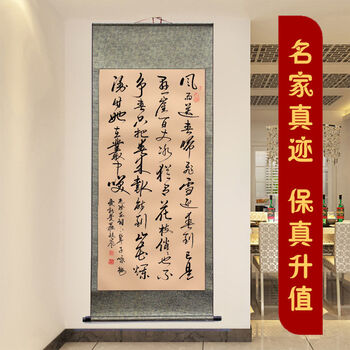 风雨送春归飞雪迎春到已是
悬崖百丈冰犹有花枝俏也不
争春只把春来报待到山花烂
漫时她在叢中咲
名家真迹 保真升值